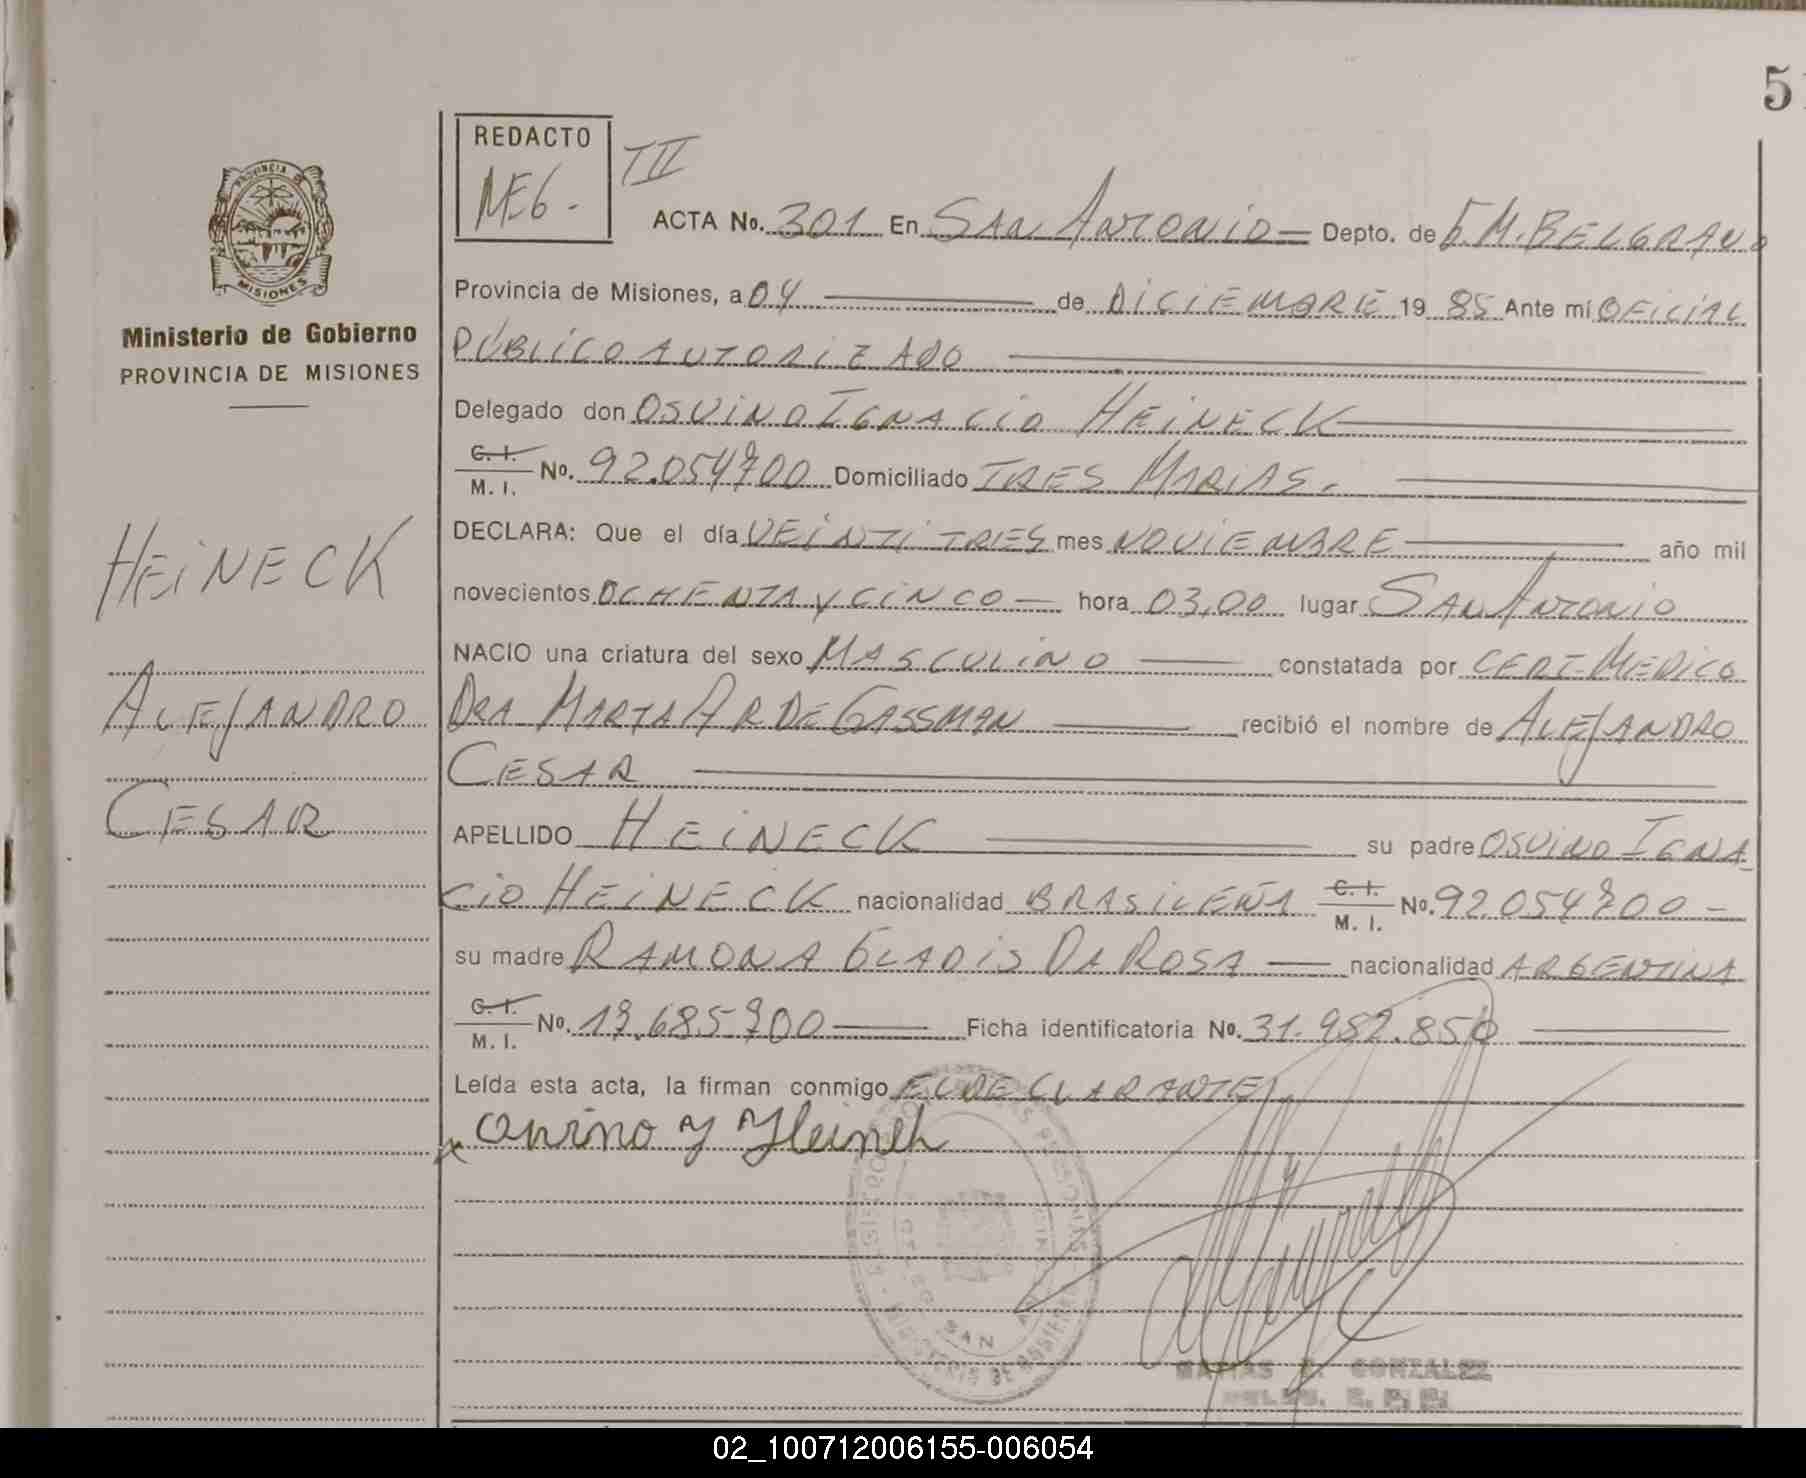 51
REDACTO
MEG.
III
ACTA No. 301 En SAN ANTONIO Depto. de G.M. BELGRANO
PROVINCIA
MISIONES
Ministerio de Gobierno
PROVINCIA DE MISIONES
Provincia de Misiones, a 04 de DICIEMBRE 1985 Ante mí OFICIAL
PÚBLICO AUTORIZADO
Delegado don OSVINO IGNACIO HEINECK
C. I.
M. I. No. 92.054700 Domiciliado TRES MARIAS.
DECLARA: Que el día VEINTITRES mes NOVIEMBRE año mil
novecientos OCHENTA y CINCO hora 03,00 lugar SAN ANTONIO
NACIO una criatura del sexo MASCULINO constatada por CERT. MEDICO
DRA MARTA A R DE GASSMAN recibió el nombre de ALEJANDRO
CESAR
APELLIDO HEINECK su padre OSVINO IGNA
CIO HEINECK nacionalidad BRASILEÑA C. I. M. I. No. 92.054700-
su madre RAMONA GLADIS DA ROSA nacionalidad ARGENTINA
C. I.
M. I. No. 17.685700 Ficha identificatoria No. 31.952.850
Leída esta acta, la firman conmigo EL DECLARANTE
x Osvino y Heineck
HEINECK
ALEJANDRO
CESAR
SAN
GONZALEZ
02_100712006155-006054